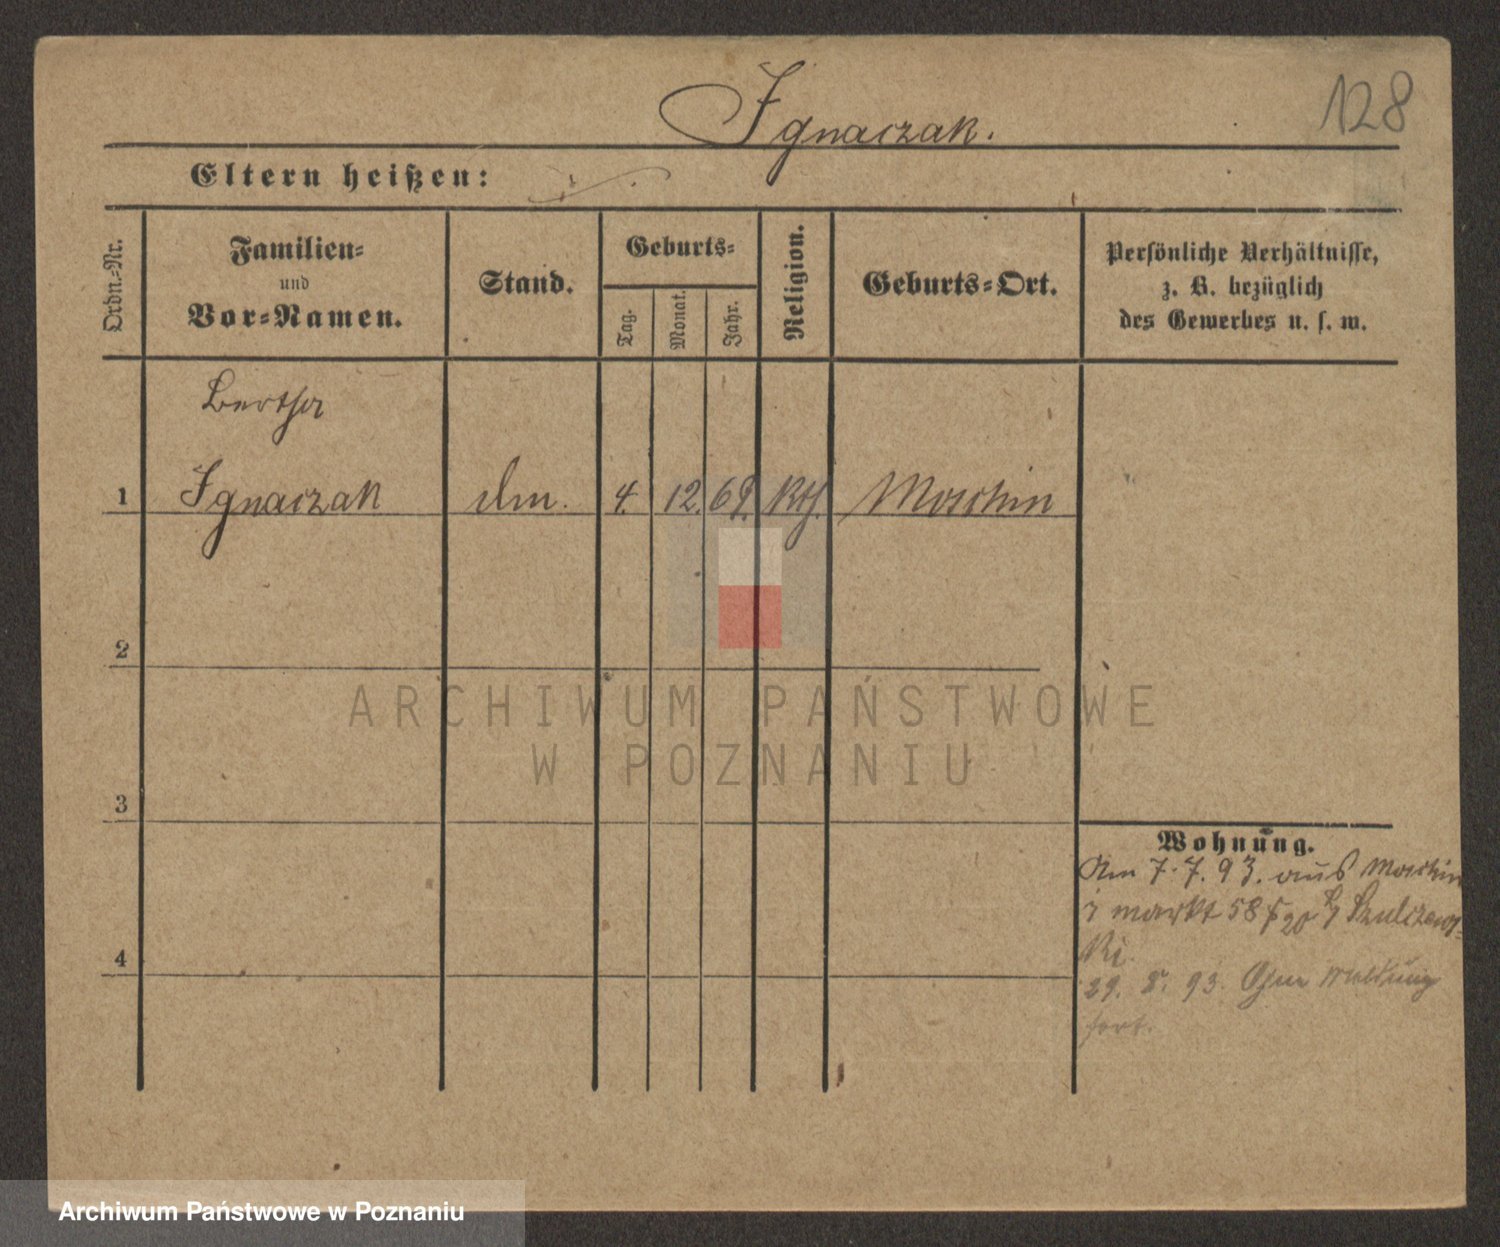 Ignaczak.
128
Eltern heißen:
Ordn.-Nr.
Familien-
und
Vor-Namen.
Stand.
Geburts-
Tag.
Monat.
Jahr.
Religion.
Geburts-Ort.
Persönliche Verhältnisse,
z. B. bezüglich
des Gewerbes u. s. w.
Bertha
1 Ignaczak 4. 12. 69. Kth. Moschin
2
ARCHIWUM PAŃSTWOWE
W POZNANIU
3
4
Wohnung.
Am 7.7.93. aus Moschin
markt 58 Szulczews-
ki.
29. 8. 93. Ohne Meldung
fort.
Archiwum Państwowe w Poznaniu